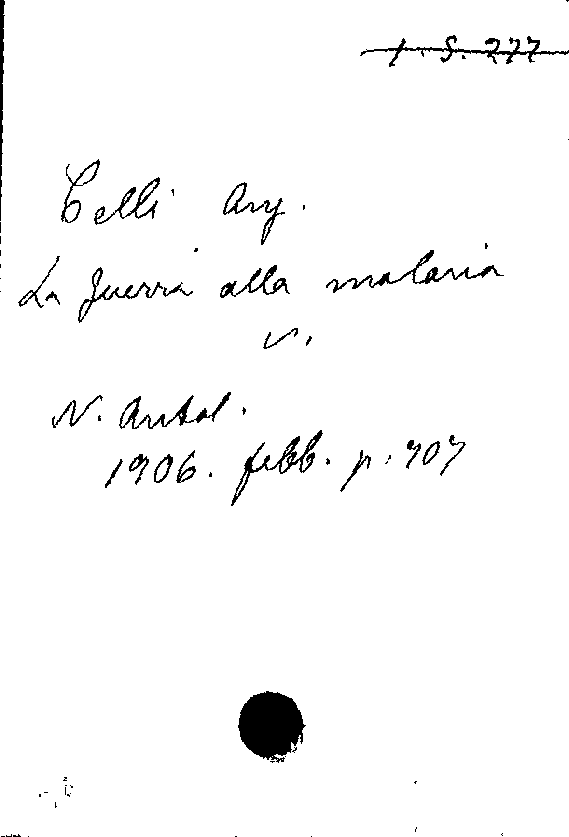 1. S. 277
Celli Ang.
La guerra alla malaria
v.
N. Antol.
1906. febb. p. 707